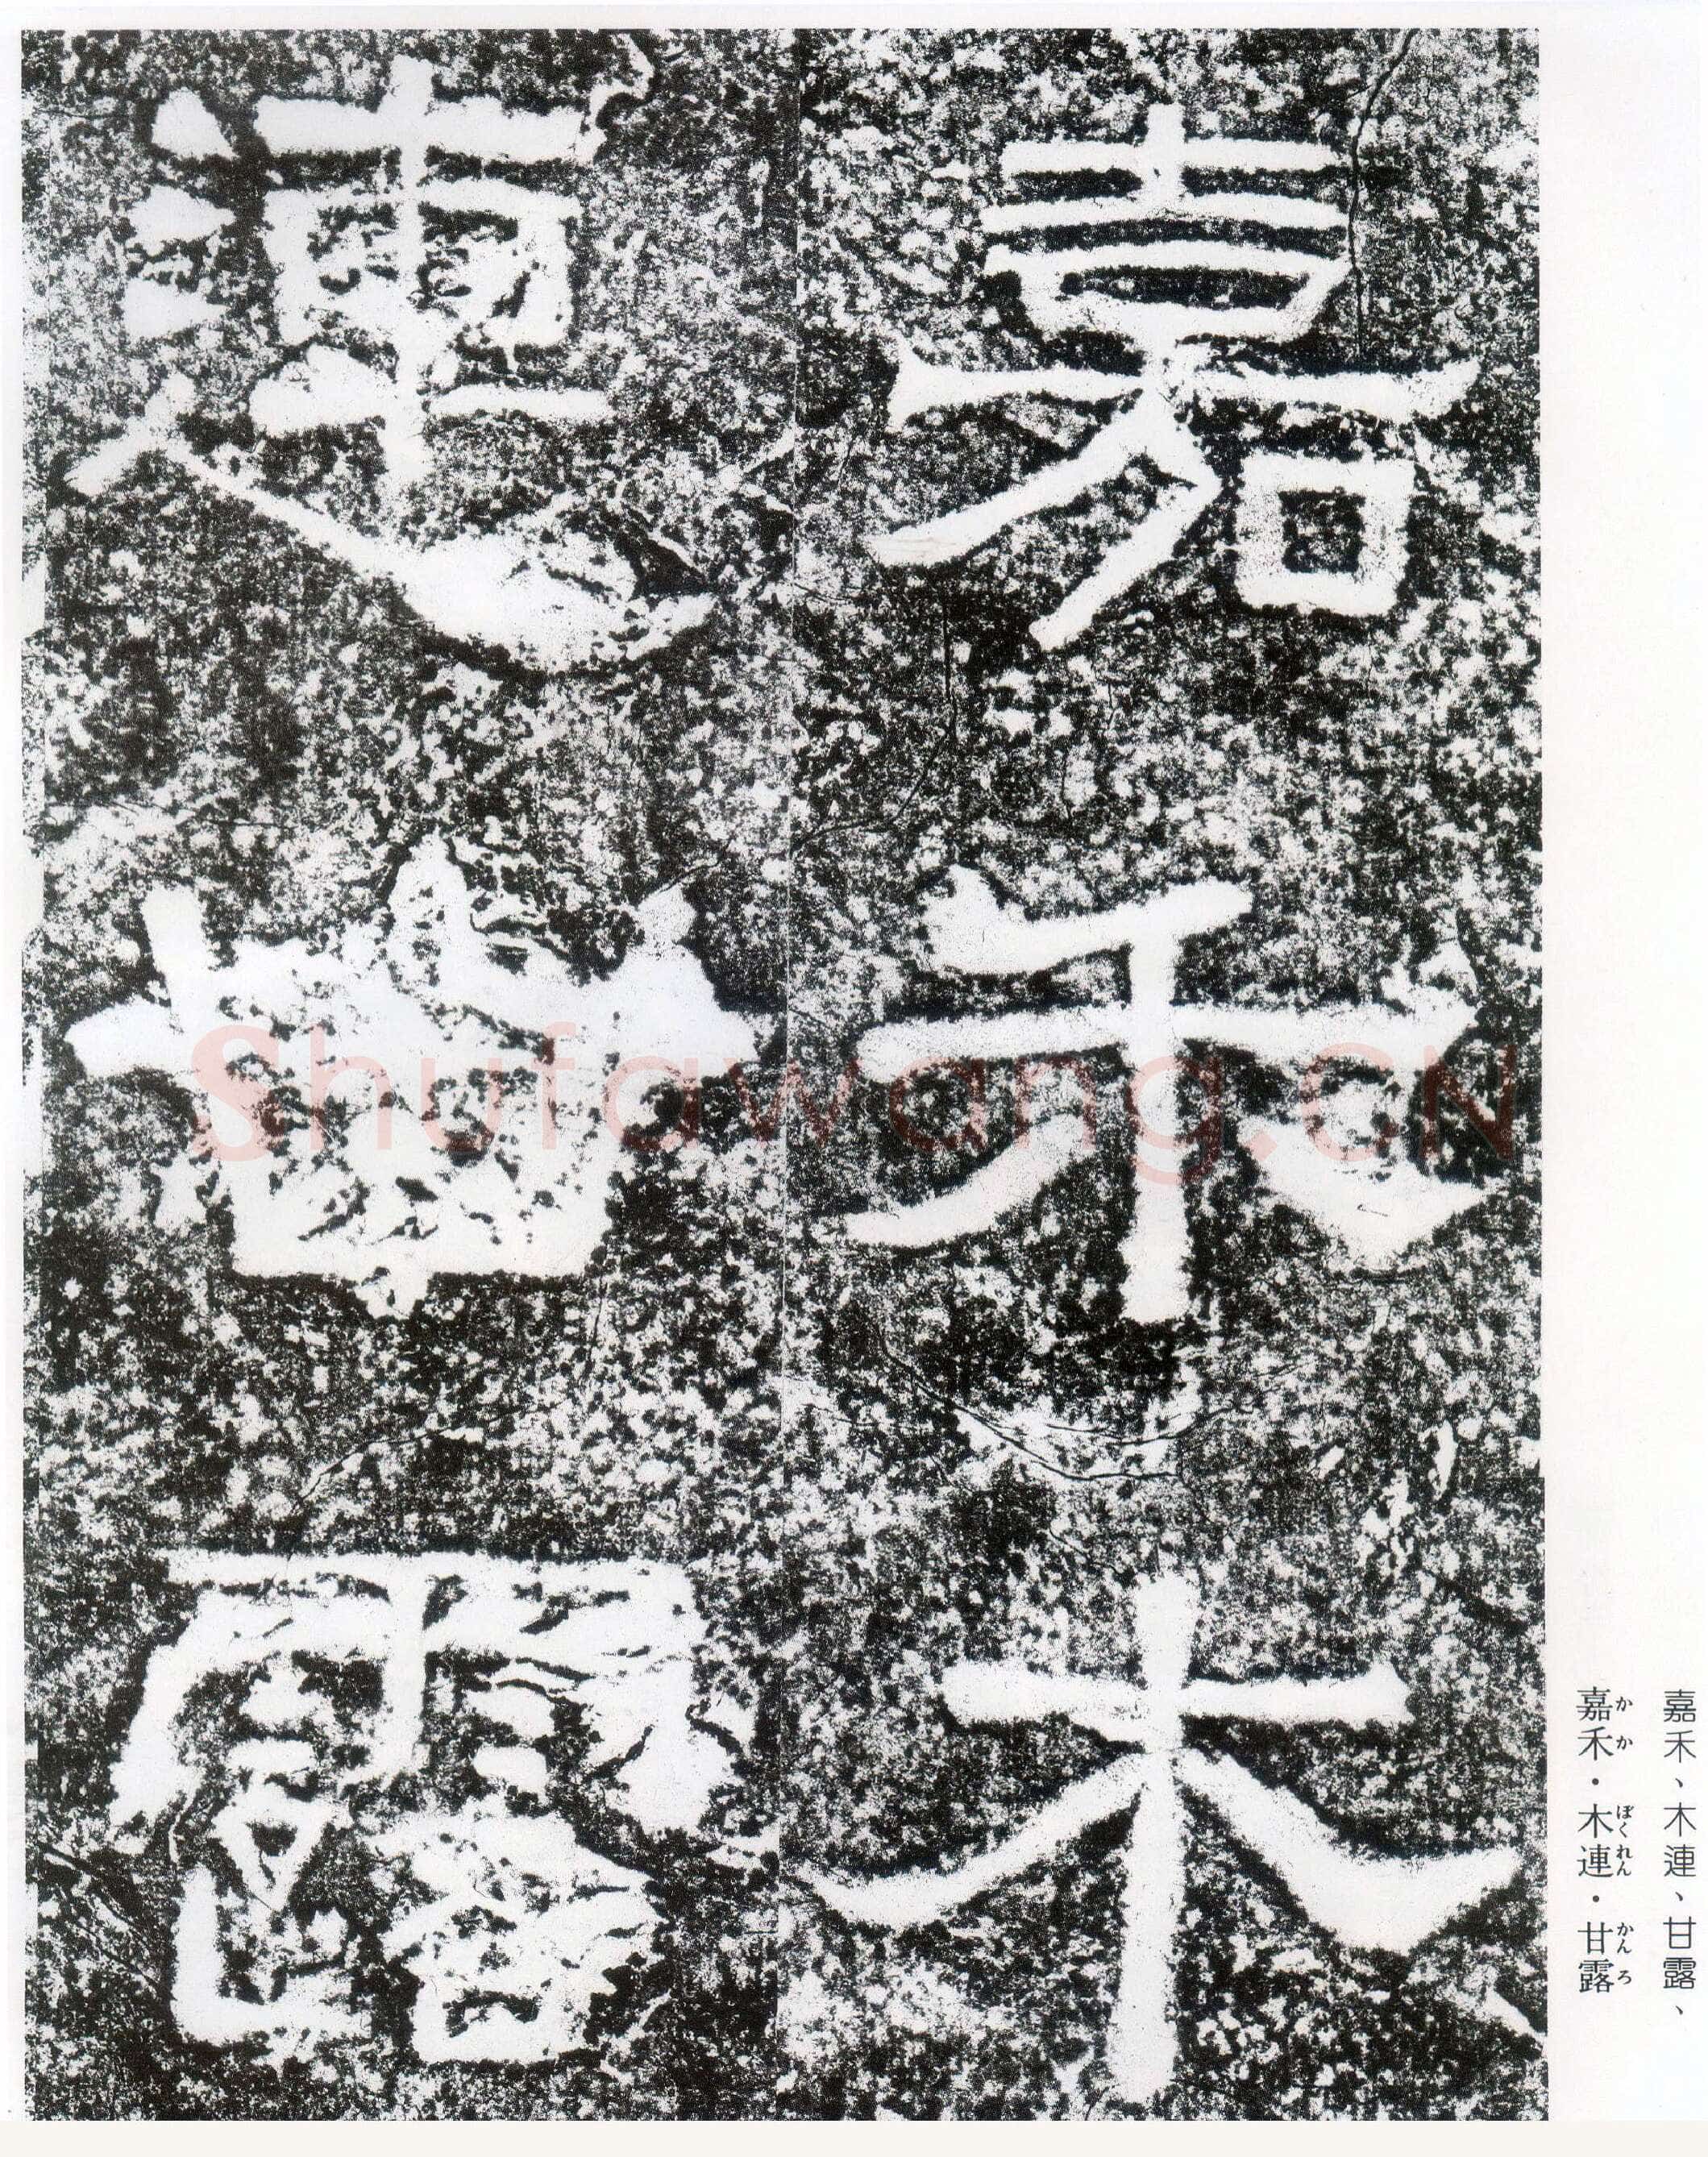 嘉禾木
連甘露
嘉禾、木連、甘露、
嘉禾・木連・甘露
かか ぼくれん かんろ
Shufawang.CN